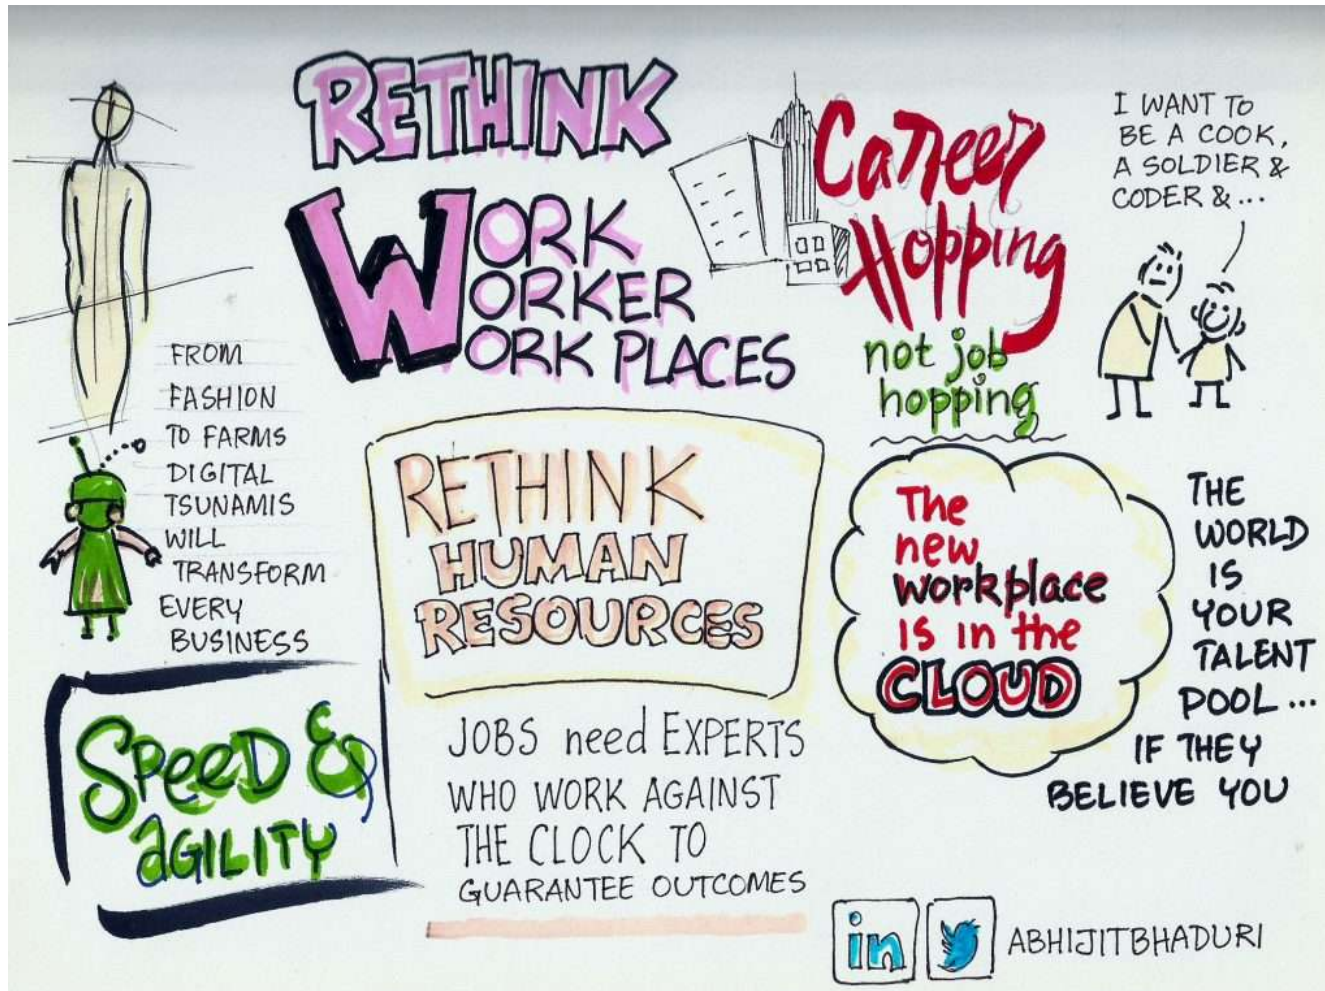 RETHINK
WORK
WORKER
WORK PLACES
Career
Hopping
not job
hopping
I WANT TO
BE A COOK,
A SOLDIER &
CODER & ...
FROM
FASHION
TO FARMS
DIGITAL
TSUNAMIS
WILL
TRANSFORM
EVERY
BUSINESS
RETHINK
HUMAN
RESOURCES
The
new
workplace
is in the
CLOUD
THE
WORLD
IS
YOUR
TALENT
POOL ...
IF THEY
BELIEVE YOU
SPEED &
AGILITY
JOBS need EXPERTS
WHO WORK AGAINST
THE CLOCK TO
GUARANTEE OUTCOMES
in
ABHIJITBHADURI